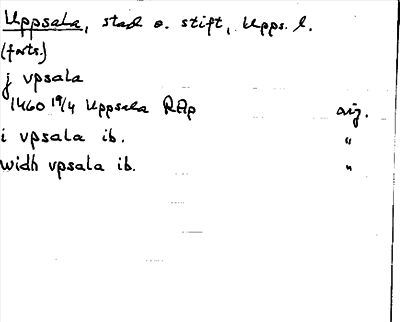 Uppsala, stad o. stift, Upps. l.
(forts.)
j vpsala
1460 19/4 Uppsala RAp or.
i vpsala ib. "
widh vpsala ib. "